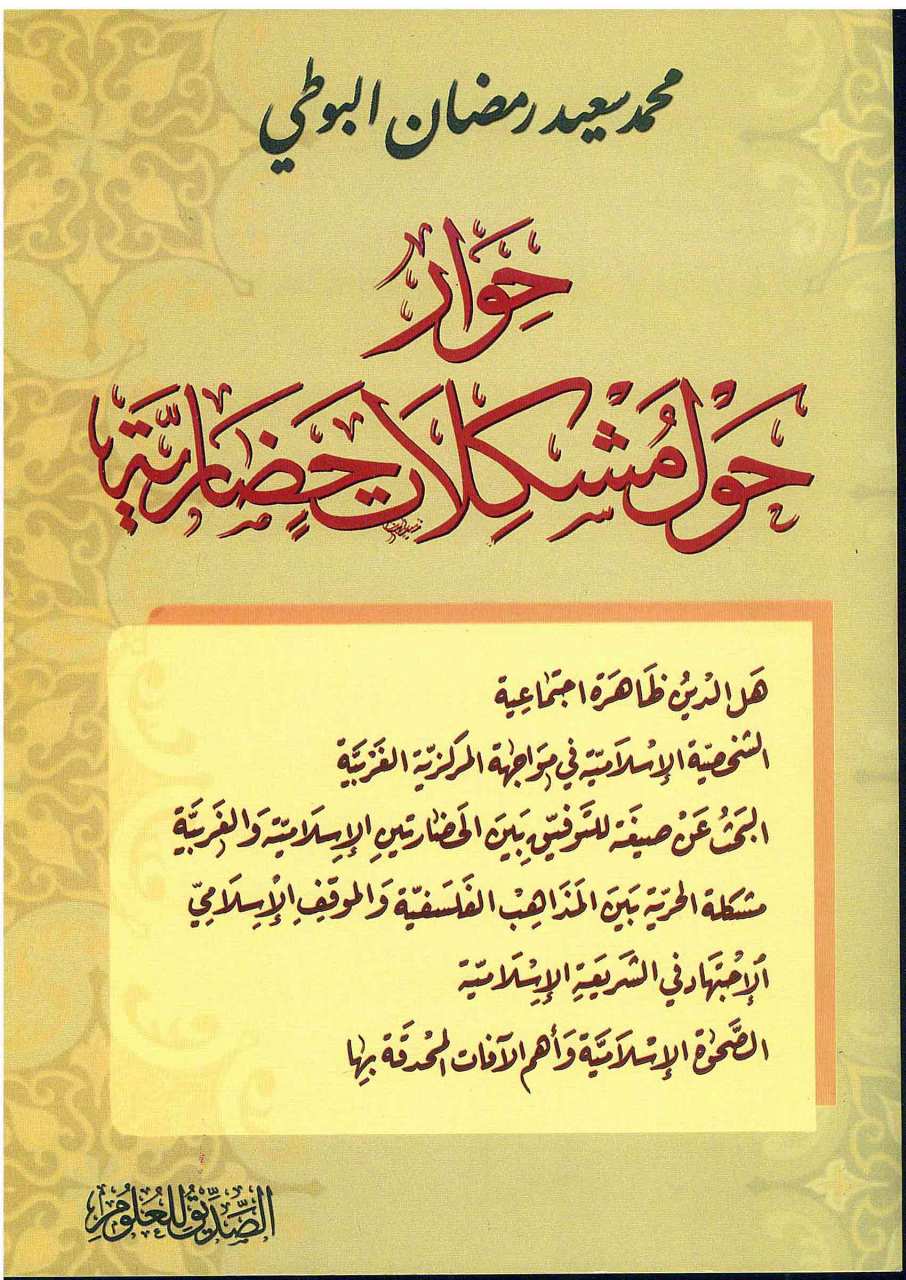 محمد سعيد رمضان البوطي
حِوَار
حَوْل مُشْكِلَات حَضَارِيَّة
هَل الدين ظَاهَرَة اجتمَاعِية
الشخصيّة الإسْلَاميّة في مواجهة المركزيّة الغَرْبيَّة
البحثُ عَنْ صيغَة للتَّوفيق بَينَ الحَضارتينِ الإسِلَاميّة وَالغربيَّة
مشكلة الحريّة بَين المَذَاهِبْ الفَلسَفيّة وَالموقفِ الإسْلَاميّ
الإجْتهَاد في الشَريعَةِ الإسْلَاميّة
الصَّحوَة الإسْلَاميَّة وَأهم الآفات المحُدقَة بهَا
الصِّدِّيقُ للعُلُومُ